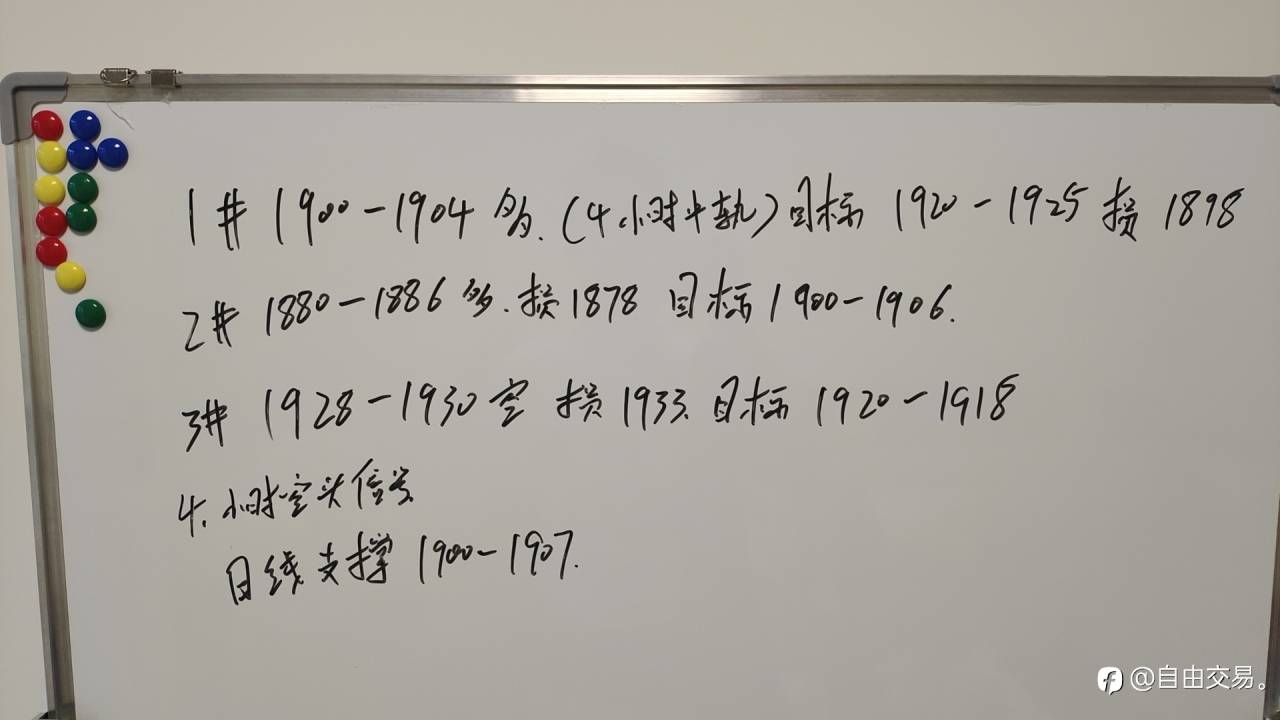 1# 1900-1904 多.(4小时中轨)目标 1920-1925 损 1898
2# 1880-1886 多.损1878 目标1900-1906.
3# 1928-1930 空 损1933.目标 1920-1918
4.小时空头信号
日线支撑 1900-1907.
@自由交易。